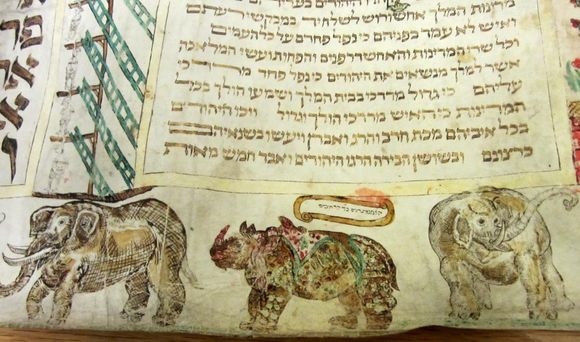 מדינות המלך אחשורוש לשלח יד במבקשי רעתם
ואיש לא עמד בפניהם כי נפל פחדם על כל העמים
וכל שרי המדינות והאחשדרפנים והפחות ועשי המלאכה
אשר למלך מנשאים את היהודים כי נפל פחד מרדכי
עליהם כי גדול מרדכי בבית המלך ושמעו הולך בכל
המדינות כי האיש מרדכי הולך וגדול ויכו היהודים
בכל איביהם מכת חרב והרג ואבדן ויעשו בשנאיהם
כרצונם ובשושן הבירה הרגו היהודים ואבד חמש מאות